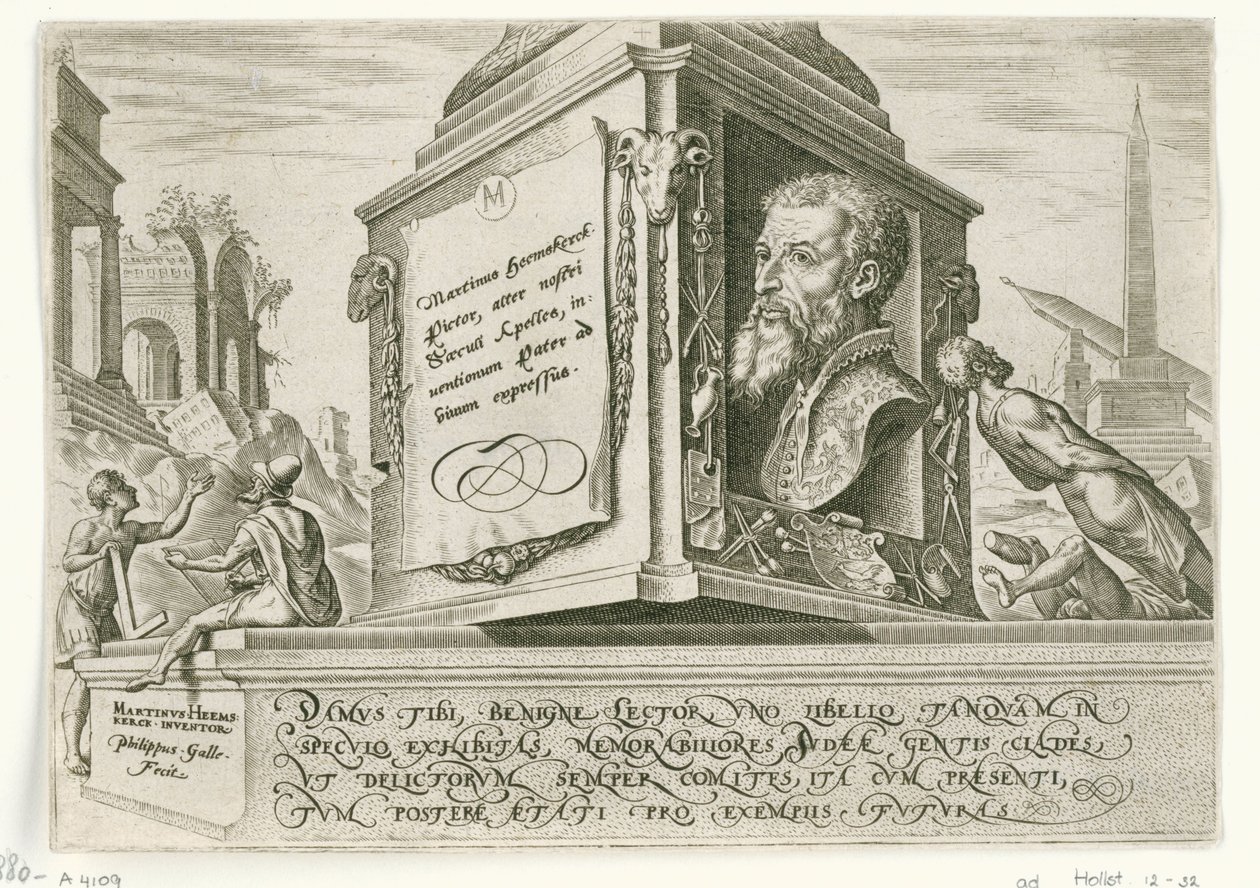 M
Martinus Heemskerck.
Pictor, alter nostri
Sæculi Apelles, in:
uentionum Pater ad
viuum expressus.
MARTINVS HEEMS:
KERCK · INVENTOR
Philippus Galle.
Fecit
DAMVS TIBI, BENIGNE LECTOR, VNO LIBELLO TANQVAM IN
SPECVLO EXHIBITAS, MEMORABILIORES JVDEÆ GENTIS CLADES,
VT DELICTORVM SEMPER COMITES, ITA CVM PRÆSENTI,
TVM POSTERÆ ÆTATI PRO EXEMPLIS FVTVRAS.
880- A 4109
ad Hollst. 12-32